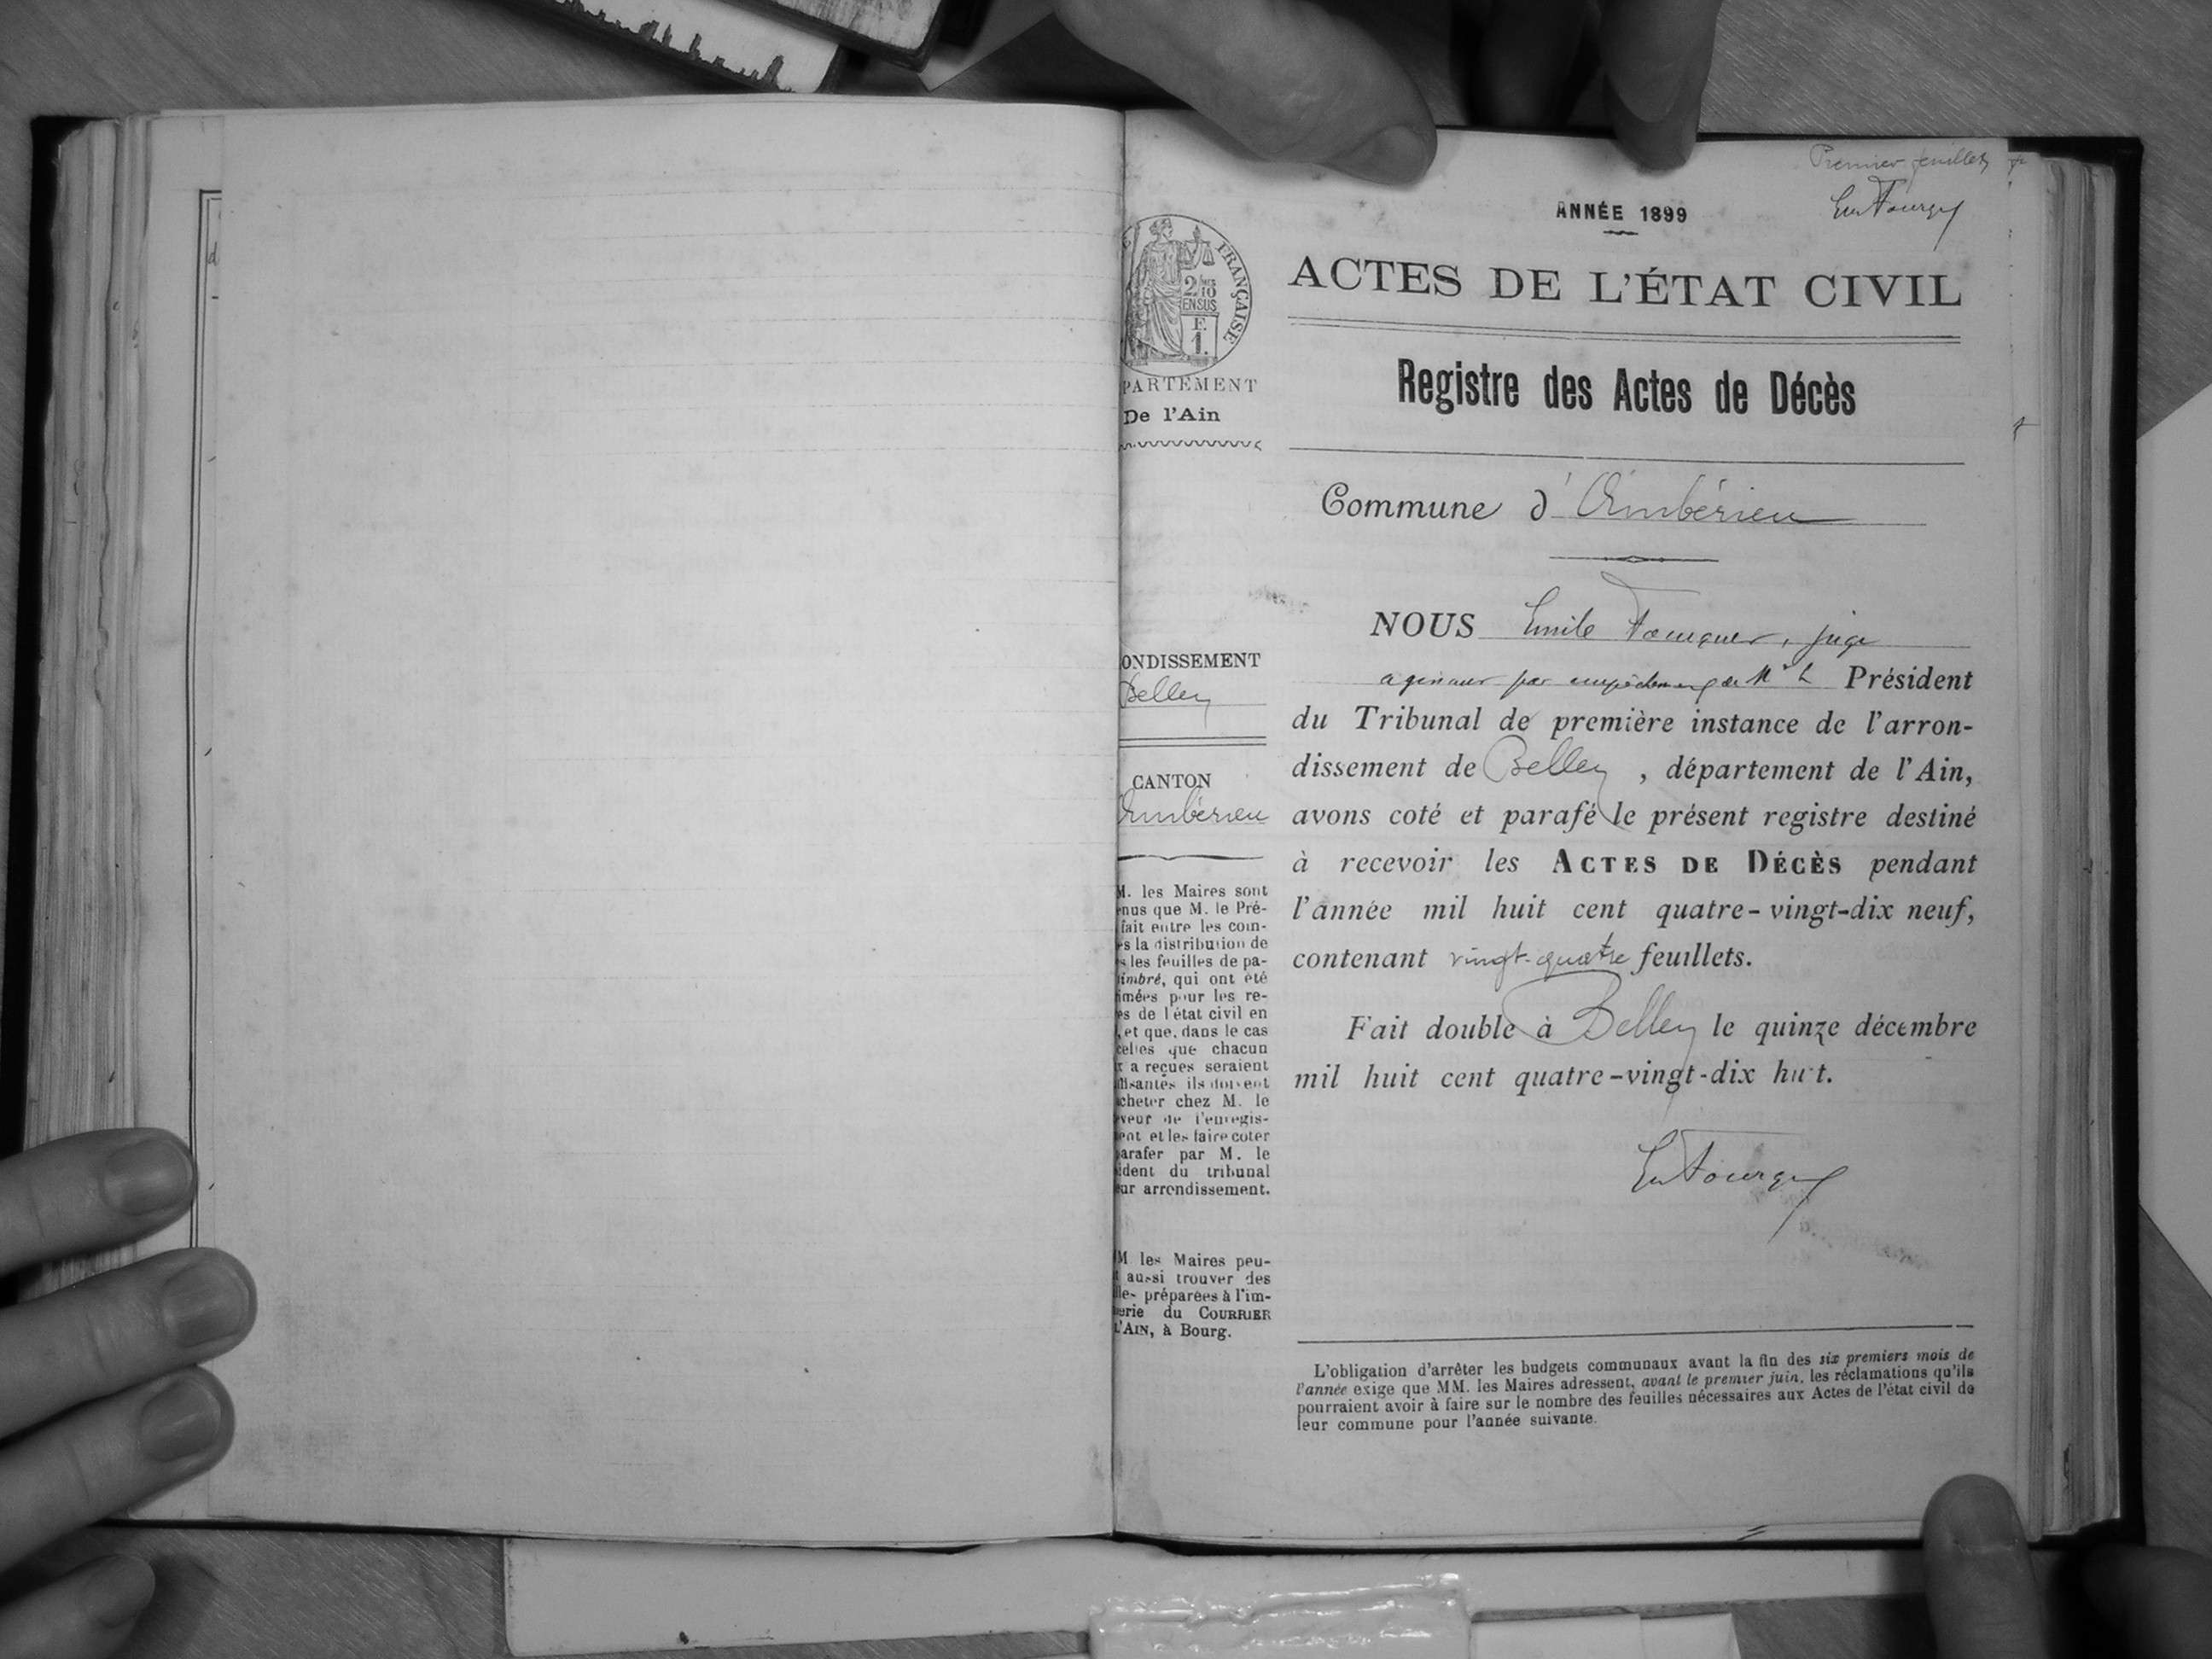 Premier feuillet
ANNÉE 1899
ACTES DE L'ÉTAT CIVIL
FRANÇAISE
2/10
ENSUS
F.
1.
PARTEMENT
De l'Ain
Registre des Actes de Décès
Commune d'Ambérieu
ONDISSEMENT
Belley
CANTON
Ambérieu
M. les Maires sont
nus que M. le Pré-
fait entre les com-
s la distribution de
s les feuilles de pa-
imbré, qui ont été
imées pour les re-
s de l'état civil en
, et que, dans le cas
celles que chacun
a reçues seraient
ils doivent
cheter chez M. le
veur de l'enregis-
ent et les faire coter
arafer par M. le
ident du tribunal
ur arrondissement.
M les Maires peu-
aussi trouver des
les préparées à l'im-
erie du COURRIER
L'AIN, à Bourg.
NOUS Emile juge
par Président
du Tribunal de première instance de l'arron-
dissement de Belley, département de l'Ain,
avons coté et parafé le présent registre destiné
à recevoir les ACTES DE DÉCÈS pendant
l'année mil huit cent quatre-vingt-dix neuf,
contenant vingt-quatre feuillets.
Fait double à Belley le quinze décembre
mil huit cent quatre-vingt-dix huit.
L'obligation d'arrêter les budgets communaux avant la fin des six premiers mois de
l'année exige que MM. les Maires adressent, avant le premier juin, les réclamations qu'ils
pourraient avoir à faire sur le nombre des feuilles nécessaires aux Actes de l'état civil de
leur commune pour l'année suivante.